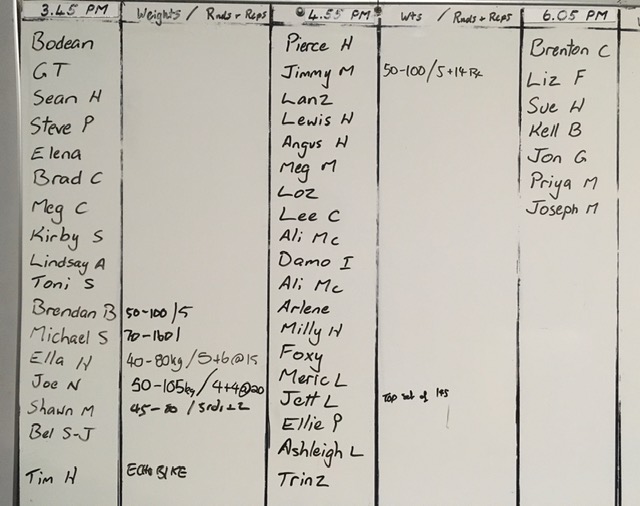 3.45 PM Weights / Rnds + Reps 4.55 PM Wts / Rnds + Reps 6.05 PM
Bodean Pierce H Brenton C
GT Jimmy M 50-100/5+14 Rx Liz F
Sean H Lanz Sue H
Steve P Lewis H Kell B
Elena Angus H Jon G
Brad C Meg M Priya M
Meg C Loz Joseph M
Kirby S Lee C
Lindsay A Ali Mc
Toni S Damo I
Brendan B 50-100/5 Ali Mc
Michael S 70-160/ Arlene
Ella H 40-80kg/5+6@15 Milly H
Joe N 50-105kg/4+4@20 Foxy
Shawn M 45-80 / Meric L
Bel S-J Jett L Top set of
Tim H ECHO BIKE Ellie P
Ashleigh L
Trinz